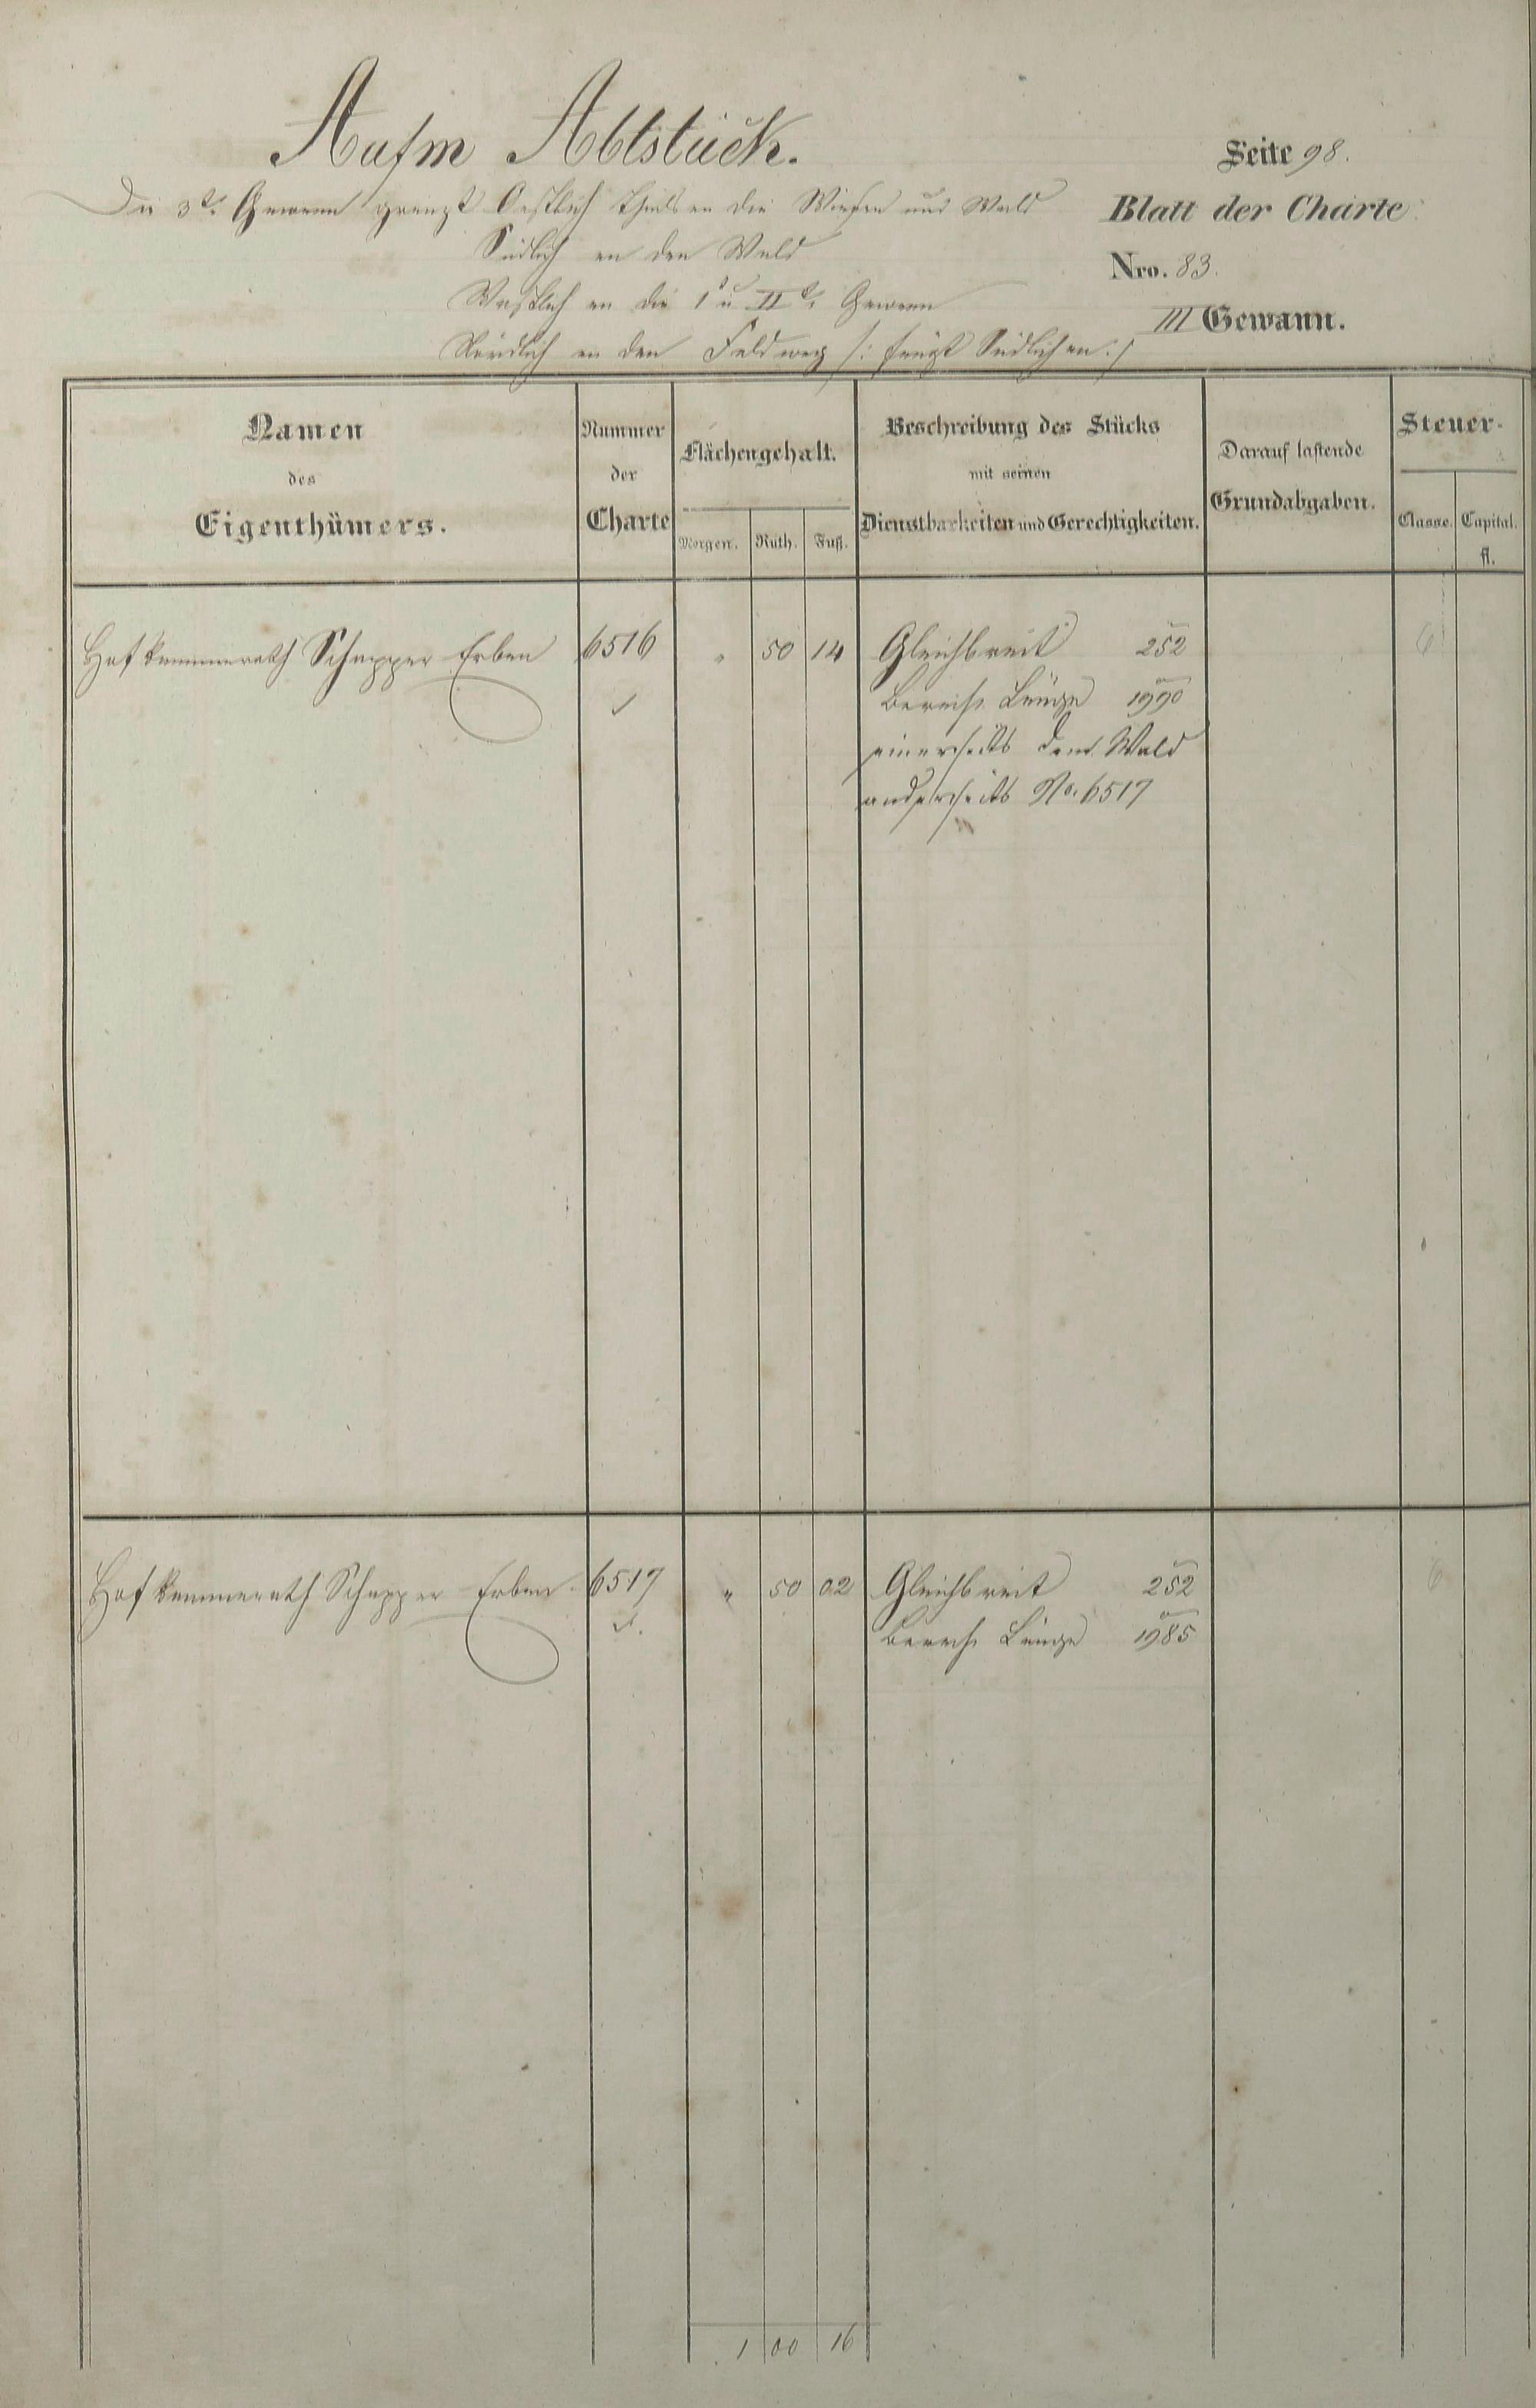 Aufm Abtstück.
Seite 98.
Die 3te Gewann grenzt Oestlich theils an die Wiesen und Wald
Blatt der Charte
Südlich an den Wald
Nro. 83.
Westlich an die 1te u IIte Gewann
III Gewann.
Nördlich an den Feldweg /: fängt Südlich an :/
Namen
des
Eigenthümers.
Nummer
der
Charte
Flächengehalt.
Morgen. Ruth. Fuß.
Beschreibung des Stücks
mit seinen
Dienstbarkeiten und Gerechtigkeiten.
Darauf lastende
Grundabgaben.
Steuer-
Classe. Capital.
fl.
Hofkammerath Schapper Erben 6516 " 50 14 Gleichbreit 252 6
Berech. Länge 1990
einerseits dem Wald
anderseits No. 6517
Hofkammerath Schapper Erben 6517 " 50 02 Gleichbreit 252 6
Berech. Länge 1985
1 00 16